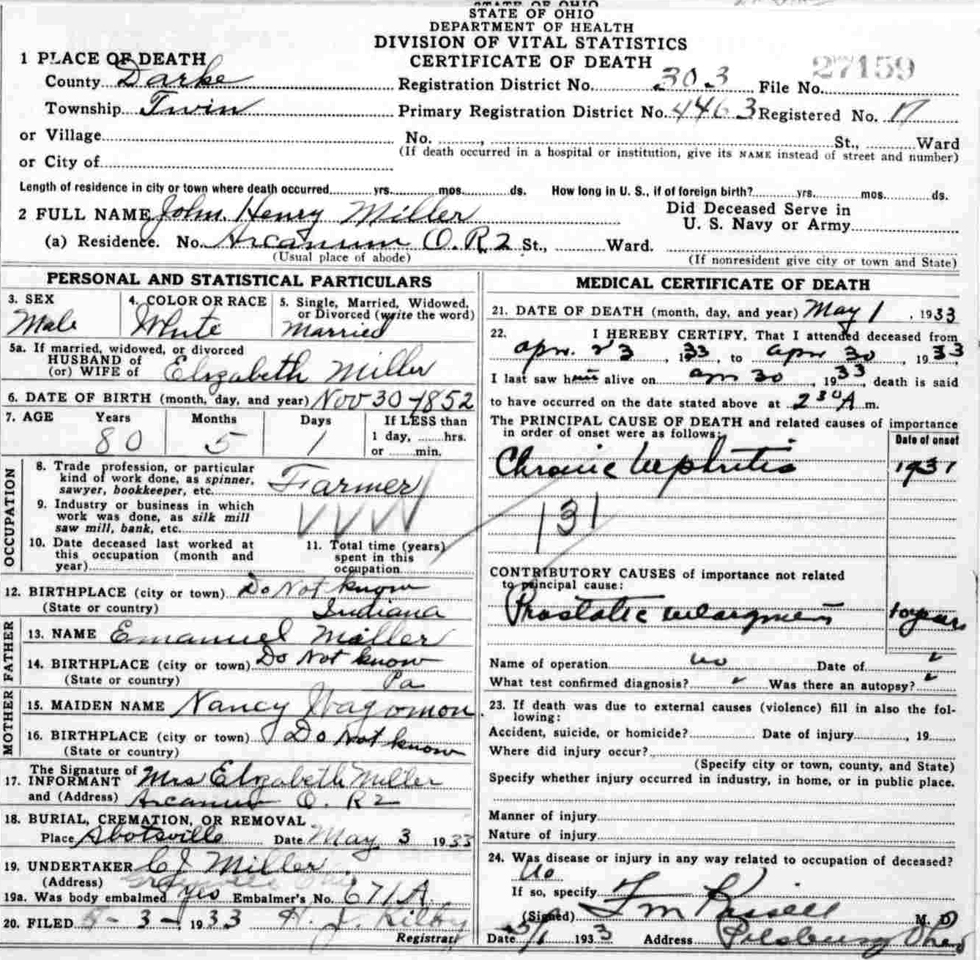 STATE OF OHIO
STATE OF OHIO
DEPARTMENT OF HEALTH
DIVISION OF VITAL STATISTICS
CERTIFICATE OF DEATH
1 PLACE OF DEATH
County Darke Registration District No. 303 File No. 27159
Township Twin Primary Registration District No. 4463 Registered No. 17
or Village No. St., Ward
or City of (If death occurred in a hospital or institution, give its NAME instead of street and number)
Length of residence in city or town where death occurred yrs. mos. ds. How long in U. S., if of foreign birth? yrs. mos. ds.
2 FULL NAME John Henry Miller Did Deceased Serve in U. S. Navy or Army
(a) Residence. No. Arcanum O. R 2 St., Ward.
(Usual place of abode) (If nonresident give city or town and State)
PERSONAL AND STATISTICAL PARTICULARS
3. SEX 4. COLOR OR RACE 5. Single, Married, Widowed, or Divorced (write the word)
Male White Married
5a. If married, widowed, or divorced
HUSBAND of
(or) WIFE of Elizabeth Miller
6. DATE OF BIRTH (month, day, and year) Nov 30-1852
7. AGE Years Months Days If LESS than
80 5 1 1 day, hrs.
or min.
OCCUPATION
8. Trade profession, or particular
kind of work done, as spinner,
sawyer, bookkeeper, etc. Farmer
9. Industry or business in which
work was done, as silk mill
saw mill, bank, etc.
10. Date deceased last worked at
this occupation (month and
year)
11. Total time (years)
spent in this
occupation
12. BIRTHPLACE (city or town) Do Not know
(State or country) Indiana
FATHER
13. NAME Emanuel Miller
14. BIRTHPLACE (city or town) Do Not know
(State or country) Pa
MOTHER
15. MAIDEN NAME Nancy Wagomon
16. BIRTHPLACE (city or town) Do Not know
(State or country)
17. The Signature of
INFORMANT Mrs Elizabeth Miller
and (Address) Arcanum O. R2
18. BURIAL, CREMATION, OR REMOVAL
Place Abotsville Date May 3 1933
19. UNDERTAKER C J Miller
(Address)
19a. Was body embalmed yes Embalmer's No. 671A
20. FILED 5-3-, 1933 H. J. Kilby
Registrar
MEDICAL CERTIFICATE OF DEATH
21. DATE OF DEATH (month, day, and year) May 1, 1933
22. I HEREBY CERTIFY, That I attended deceased from
apr. 23, 1933, to apr 30, 1933
I last saw him alive on apr 30, 1933, death is said
to have occurred on the date stated above at 2 30 A m.
The PRINCIPAL CAUSE OF DEATH and related causes of importance
in order of onset were as follows:
Date of onset
Chronic Nephritis 1931
131
CONTRIBUTORY CAUSES of importance not related
to principal cause:
Prostatic enlargment 10 years
Name of operation no Date of
What test confirmed diagnosis? Was there an autopsy?
23. If death was due to external causes (violence) fill in also the fol-
lowing:
Accident, suicide, or homicide? Date of injury , 19
Where did injury occur?
(Specify city or town, county, and State)
Specify whether injury occurred in industry, in home, or in public place.
Manner of injury
Nature of injury
24. Was disease or injury in any way related to occupation of deceased?
No
If so, specify
(Signed) M. D.
Date 5/1 1933 Address Pittsburg Ohio